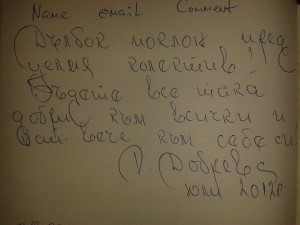 Name email Comment
Дълбок поклон пред
целия колектив!
Бъдете все така
добри към всички и
най-вече към себе си
Р. Добрева
юли 2012г